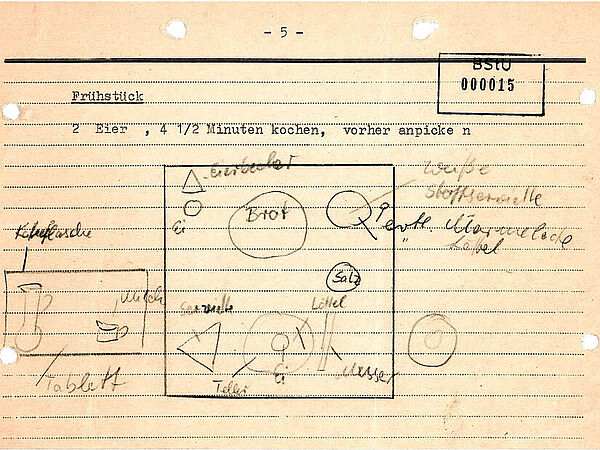 - 5 -
BStU
000015
Frühstück
2 Eier , 4 1/2 Minuten kochen, vorher anpicke n
Eierbecher
Ei
Brot
Weiße
Stoffserviette
evtl. Marmelade
" Löffel
Kaffeetasche
Milch
Salz
Serviette
Löffel
Teller
Ei
Messer
Tablett